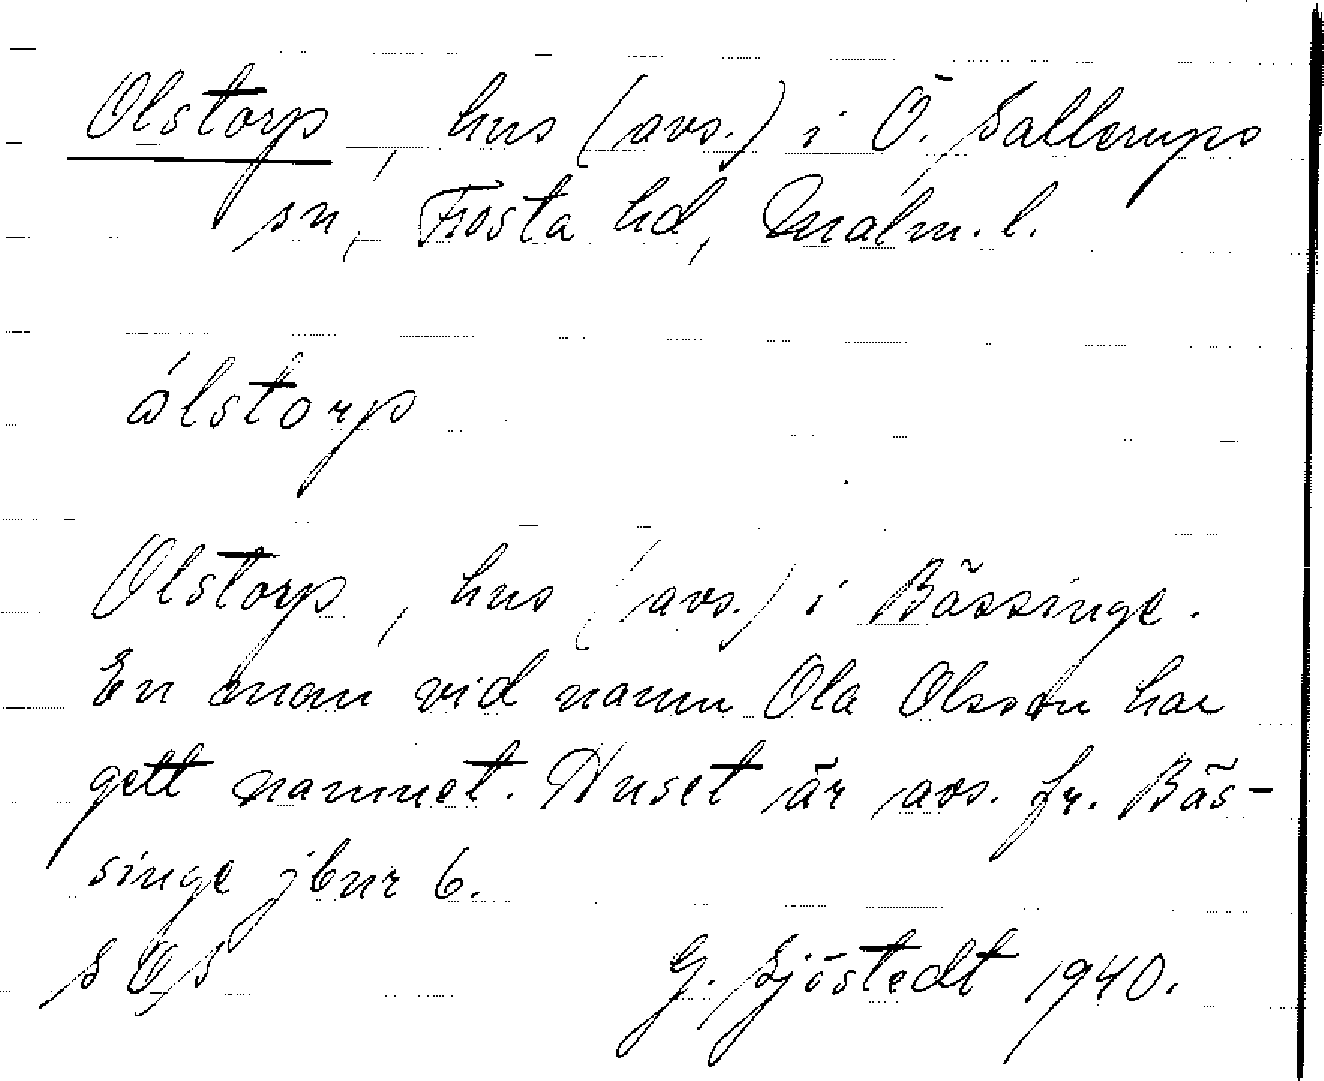 Olstorp, hus (avs.) i Ö. Sallerups
sn, Frosta hd, Malm. l.
ólstorp
Olstorp, hus (avs.) i Bässinge.
En man vid namn Ola Olsson har
gett namnet. Huset är avs. fr. Bäs-
singe jbnr 6.
SOS
G. Sjöstedt 1940.